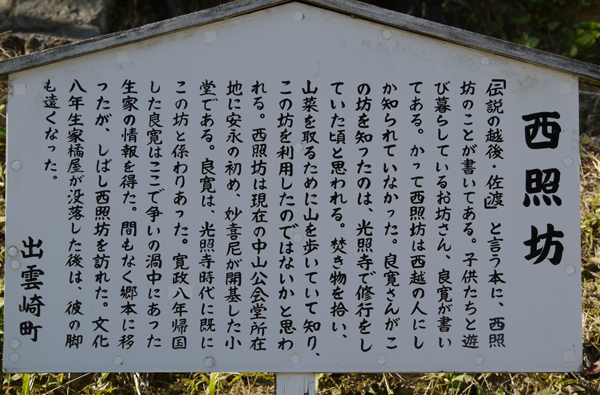 西照坊
「伝説の越後・佐渡」と言う本に、西照
坊のことが書いてある。子供たちと遊
び暮らしているお坊さん、良寛が書い
てある。かって西照坊は西越の人にし
か知られていなかった。良寛さんがこ
の坊を知ったのは、光照寺で修行をし
ていた頃と思われる。焚き物を拾い、
山菜を取るために山を歩いていて知り、
この坊を利用したのではないかと思わ
れる。西照坊は現在の中山公会堂所在
地に安永の初め、妙喜尼が開基した小
堂である。良寛は、光照寺時代に既に
この坊と係わりあった。寛政八年帰国
した良寛はここで争いの渦中にあった
生家の情報を得た。間もなく郷本に移
ったが、しばし西照坊を訪れた。文化
八年生家橘屋が没落した後は、彼の脚
も遠くなった。
出雲崎町